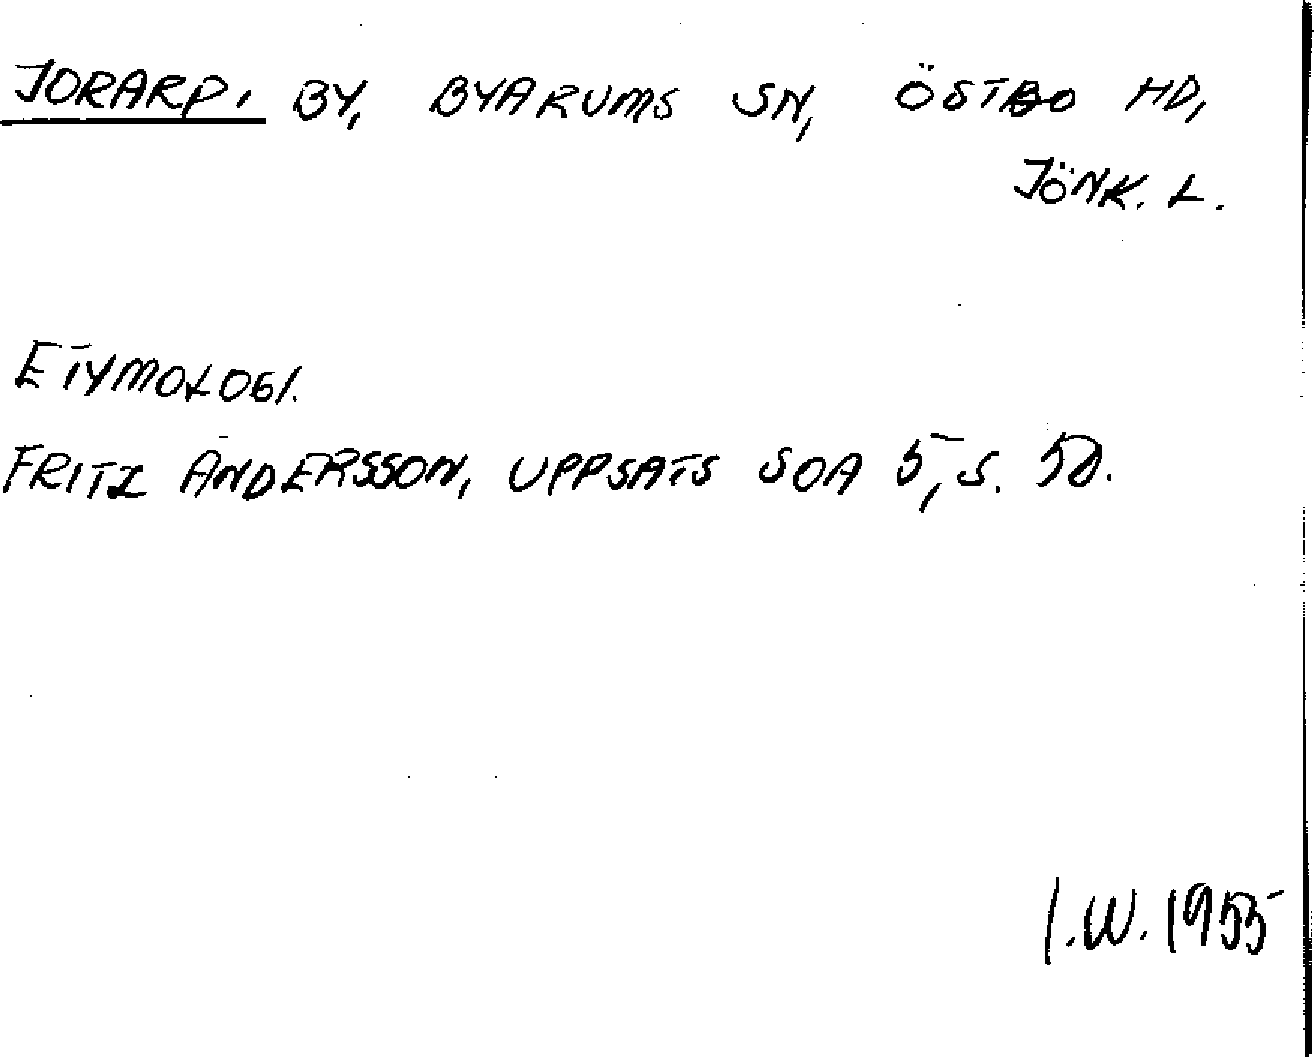 JORARP. BY, BYARUMS SN, ÖSTBO HD,
JÖNK. L.
ETYMOLOGI.
FRITZ ANDERSSON, UPPSATS SOA 5, S. 50.
I.W. 1955